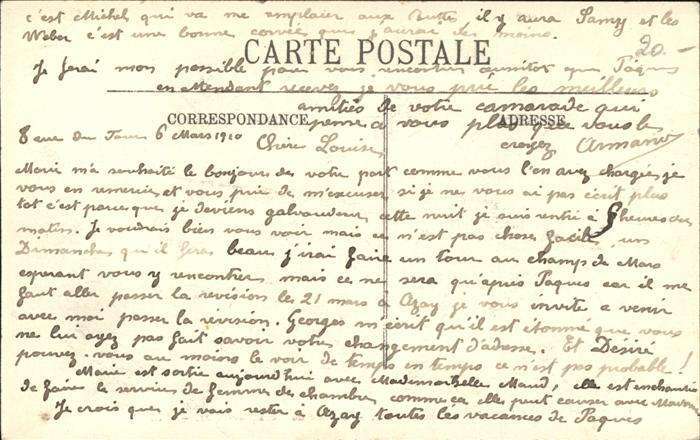 c'est Michel qui va me remplacer aux Buttes il y aura Samzy et les
Weber c'est une bonne corvée que j'aurai de moins.
20-
CARTE POSTALE
Je ferai mon possible pour vous rencontrer aussitôt que Pâques
en attendant recevez je vous prie les meilleures
amitiés de votre camarade qui
CORRESPONDANCE
ADRESSE
pense à vous plus que vous le
croyez Armand
8 rue du Parc 6 Mars 1910 Chère Louise
Marie m'a souhaité le bonjour de votre part comme vous l'en avez chargée, je
vous en remercie et vous prie de m'excuser si je ne vous ai pas écrit plus
tot c'est parce que je deviens galvaudeur cette nuit je suis rentré à 5 heures du
matin. Je voudrais bien vous voir mais ce n'est pas chose facile, un
Dimanche qu'il fera beau j'irai faire un tour au champs de Mars
esperant vous y rencontrer mais ce ne sera qu'après Paques car il me
faut aller passer la revision le 21 mars à Azay je vous invite a venir
avec moi passer la revision. Georges m'écrit qu'il est étonné que vous
ne lui ayez pas fait savoir votre changement d'adresse. Et Désiré
pouvez-vous au moins le voir de temps en temps ce n'est pas probable!
Marie est sortie aujourd'hui avec Mademoiselle Maud, elle est enchantée
de faire le service de femme de chambre comme ça elle peut causer avec
Je crois que je vais rester à Azay toutes les vacances de Paques